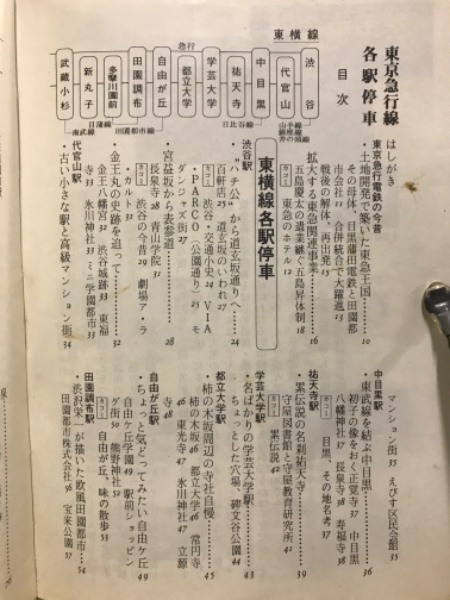 東京急行線
各駅停車
目次
東横線
急行
渋谷
代官山
中目黒
祐天寺
学芸大学
都立大学
自由が丘
田園調布
多摩川園前
新丸子
武蔵小杉
山手線
銀座線
井の頭線
日比谷線
田園都市線
目蒲線
南武線
はしがき
東京急行電鉄の今昔
・土地開発で築いた東急王国………10
その母体、目黒蒲田電鉄と田園都
市会社 11 合併統合で大躍進 13
戦後の解体、再出発 15
拡大する東急関連事業………16
五島慶太の遺業継ぐ五島昇体制 18
カコミ 東急のホテル 12
東横線各駅停車
渋谷駅
・“ハチ公”から道玄坂通りへ………24
百軒店 25 道玄坂のいわれ 27
カコミ 渋谷・交通小史 24 VIA
・PARCO(公園通り) 25 モ
ダンジャズ街 27
宮益坂から表参道………28
長泉寺 28 青山学院 31
カコミ 渋谷の今昔 29 劇場ア・ラ
・カルト 32
・金王丸の史跡を追って………32
金王八幡宮 32 渋谷城跡 33 東福
寺 33 氷川神社 33 ミニ学園都市 33
代官山駅
・古い小さな駅と高級マンション街 34
マンション街 35 えびす区民会館 35
中目黒駅
・東武線を結ぶ中目黒………36
初子の像をおく正覚寺 37 中目黒
八幡神社 37 長泉寺 38 寿福寺 38
カコミ 目黒、その地名考 37
祐天寺駅
・累伝説の名刹祐天寺………39
守屋図書館と守屋教育研究所 41
カコミ 累伝説 42
学芸大学駅
・名ばかりの学芸大学駅………43
ちょっとした穴場、碑文谷公園 44
都立大学駅
・柿の木坂周辺の寺社自慢………45
柿の木坂 46 都立大学 46 常円寺
46 東光寺 47 氷川神社 47 立源
寺 48
自由が丘駅
・ちょっと気どってみたい自由ケ丘 49
自由ケ丘学園 49 駅前ショッピン
グ街 50 熊野神社 52
カコミ 自由が丘、味の散歩 53
田園調布駅
・渋沢栄一が描いた欧風田園都市………54
田園都市株式会社 56 宝来公園 57